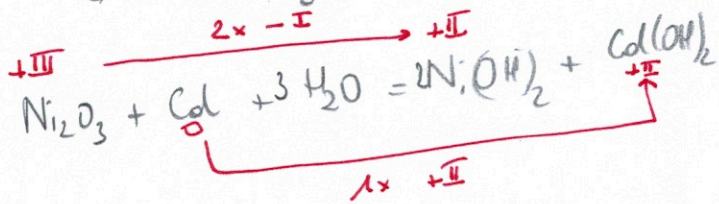 2x -I
+III +II
Ni2O3 + Cd + 3 H2O = 2Ni(OH)2 + Cd(OH)2
0 +II
1x +II